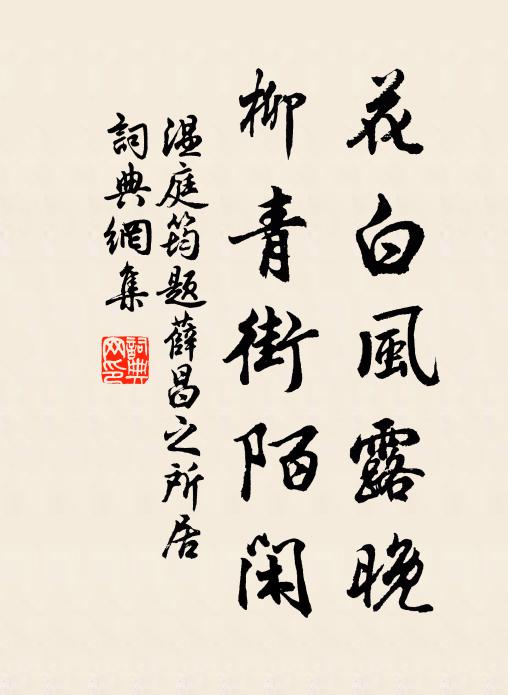 花白風露晚
柳青街陌闲
温庭筠题薛昌之所居
詞典網集
詞典网印